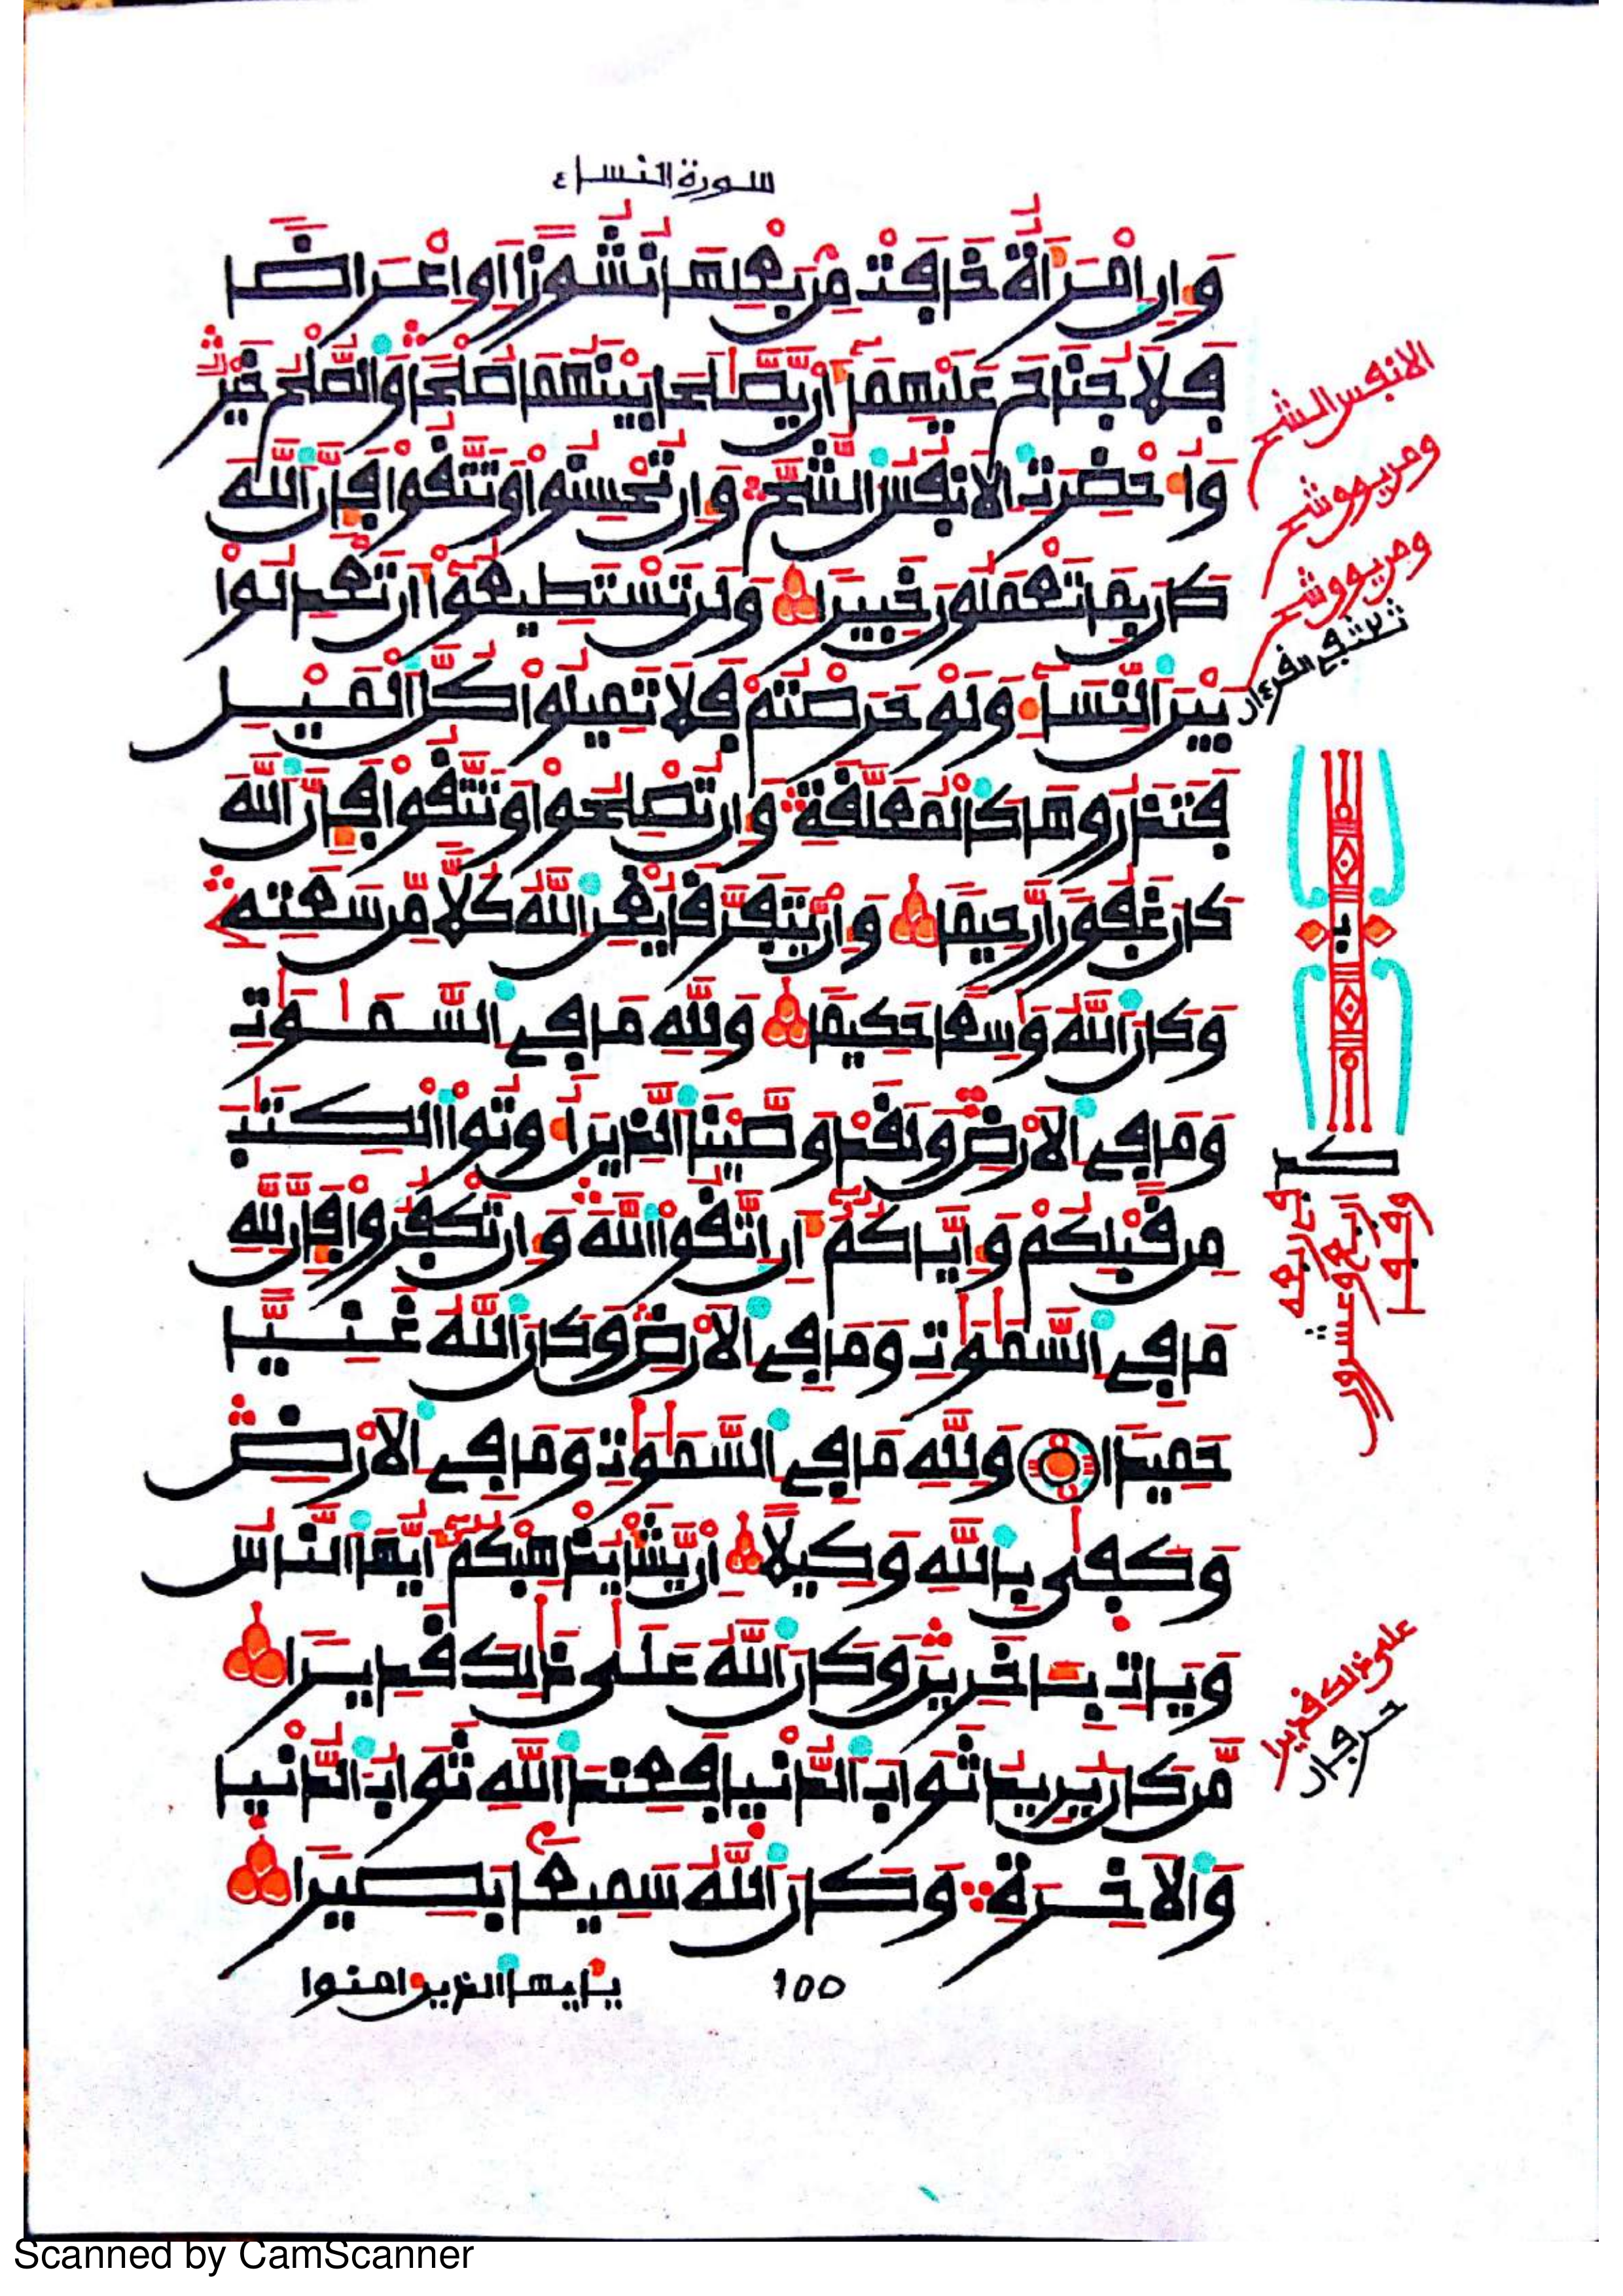 سورة النساء
وَإِنِ امْرَأَةٌ خَافَتْ مِنۢ بَعْلِهَا نُشُوزًا اَوِ اِعْرَاضًا
فَلَا جُنَاحَ عَلَيْهِمَآ أَنْ يَّصَّٰلَحَا بَيْنَهُمَا صُلْحًا وَالصُّلْحُ خَيْرٌ
وَأُحْضِرَتِ الَانفُسُ الشُّحَّ وَإِن تُحْسِنُوا وَتَتَّقُوا فَإِنَّ اللَّهَ
كَانَ بِمَا تَعْمَلُونَ خَبِيرًا وَلَن تَسْتَطِيعُوٓا أَن تَعْدِلُوا
بَيْنَ النِّسَآءِ وَلَوْ حَرَصْتُمْ فَلَا تَمِيلُوا كُلَّ الْمَيْلِ
فَتَذَرُوهَا كَالْمُعَلَّقَةِ وَإِن تُصْلِحُوا وَتَتَّقُوا فَإِنَّ اللَّهَ
كَانَ غَفُورًا رَّحِيمًا وَإِنْ يَّتَفَرَّقَا يُغْنِ اللَّهُ كُلًّا مِّن سَعَتِهِ
وَكَانَ اللَّهُ وَٰسِعًا حَكِيمًا وَلِلَّهِ مَا فِي السَّمَٰوَٰتِ
وَمَا فِي الَارْضِ وَلَقَدْ وَصَّيْنَا الَّذِينَ أُوتُوا الْكِتَٰبَ
مِن قَبْلِكُمْ وَإِيَّاكُمُۥٓ أَنِ اتَّقُوا اللَّهَ وَإِن تَكْفُرُوا فَإِنَّ لِلَّهِ
مَا فِي السَّمَٰوَٰتِ وَمَا فِي الَارْضِ وَكَانَ اللَّهُ غَنِيًّا
حَمِيدًا وَلِلَّهِ مَا فِي السَّمَٰوَٰتِ وَمَا فِي الَارْضِ
وَكَفَىٰ بِاللَّهِ وَكِيلًا إِنْ يَّشَأْ يُذْهِبْكُمُۥٓ أَيُّهَا النَّاسُ
وَيَاتِ بِـَٔاخَرِينَ وَكَانَ اللَّهُ عَلَىٰ ذَٰلِكَ قَدِيرًا
مَّن كَانَ يُرِيدُ ثَوَابَ الدُّنْيَا فَعِندَ اللَّهِ ثَوَابُ الدُّنْيَا
وَالَاخِرَةِ وَكَانَ اللَّهُ سَمِيعًۢا بَصِيرًا
يأيها الذين امنوا
100
الانفس الشح
ومن يوق شح
ومن يوق شح
ثلاث في القرءان
على ذلك قديرا
حرفان
Scanned by CamScanner